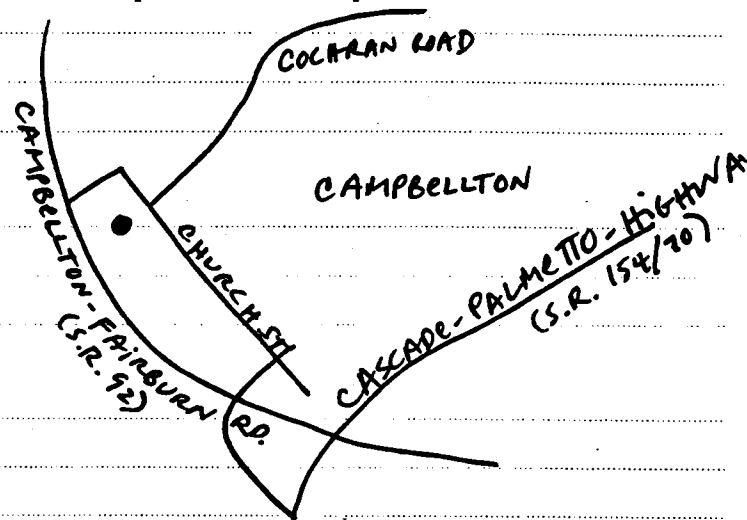 COCHRAN ROAD
CAMPBELLTON
CAMPBELLTON-FAIRBURN RD.
(S.R. 92)
CHURCH ST.
CASCADE-PALMETTO-HIGHWA
(S.R. 154/70)